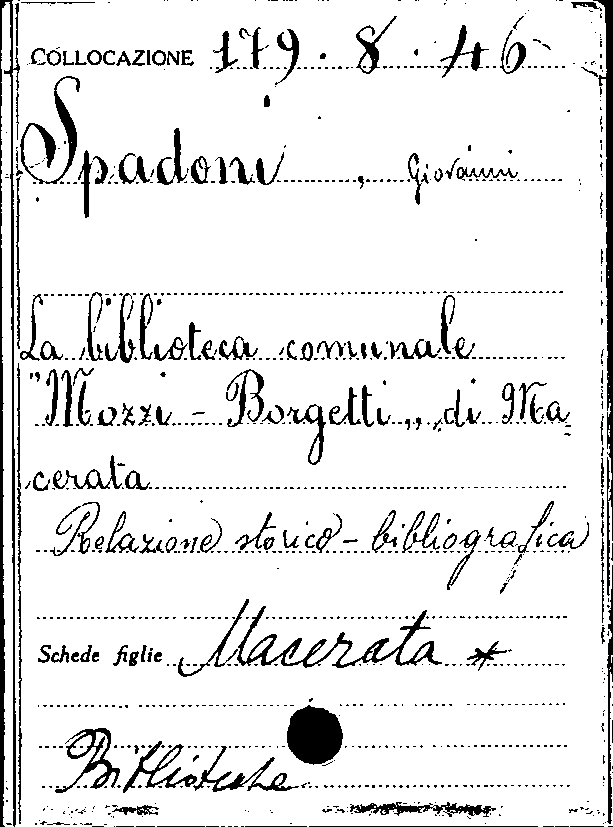 COLLOCAZIONE 179.8.46
Spadoni, Giovanni
La biblioteca comunale
"Mozzi - Borgetti„ di Ma-
cerata
Relazione storico-bibliografica
Schede figlie Macerata *
Biblioteche